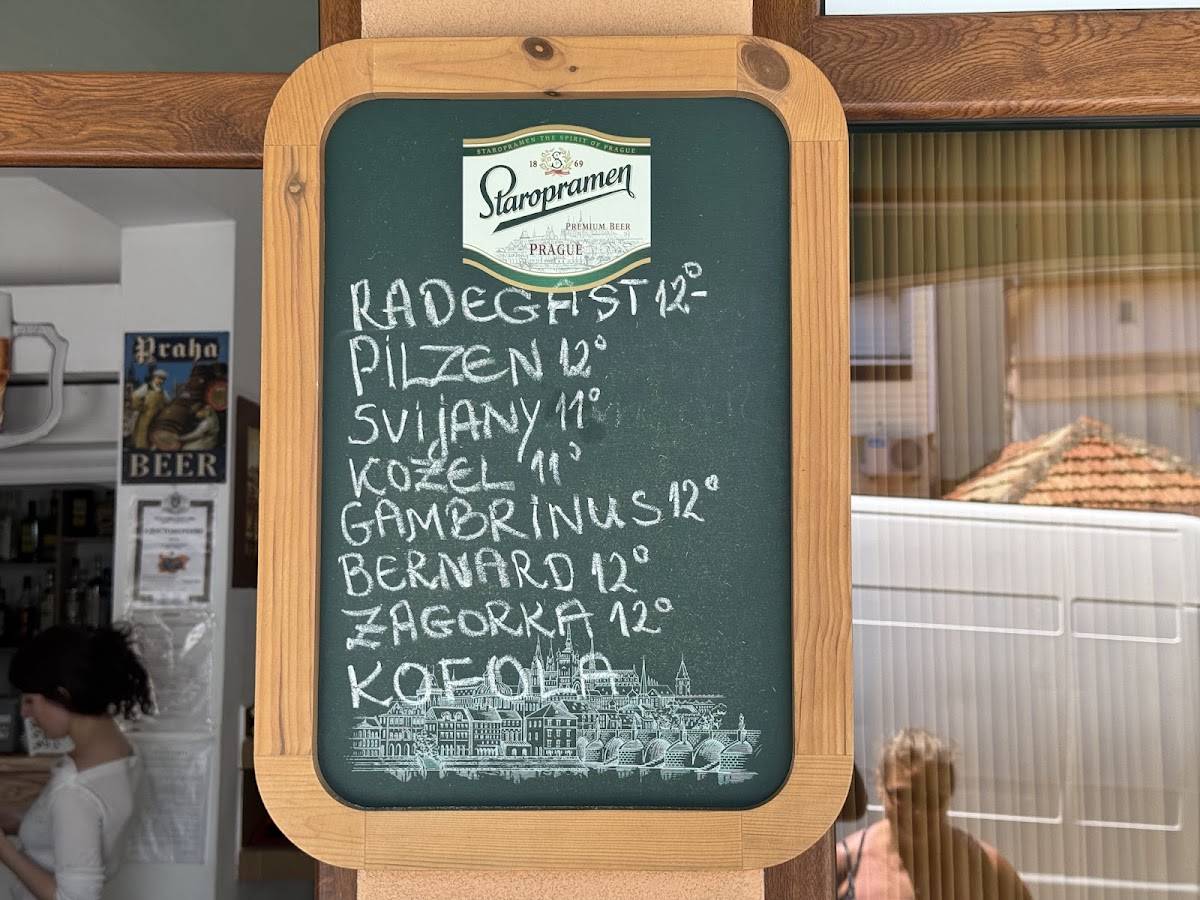 STAROPRAMEN THE SPIRIT OF PRAGUE
18 S 69
Staropramen
PREMIUM BEER
PRAGUE
RADEGAST 12°
PILZEN 12°
SVIJANY 11°
KOZEL 11°
GAMBRINUS 12°
BERNARD 12°
ZAGORKA 12°
KOFOLA
Praha
BEER